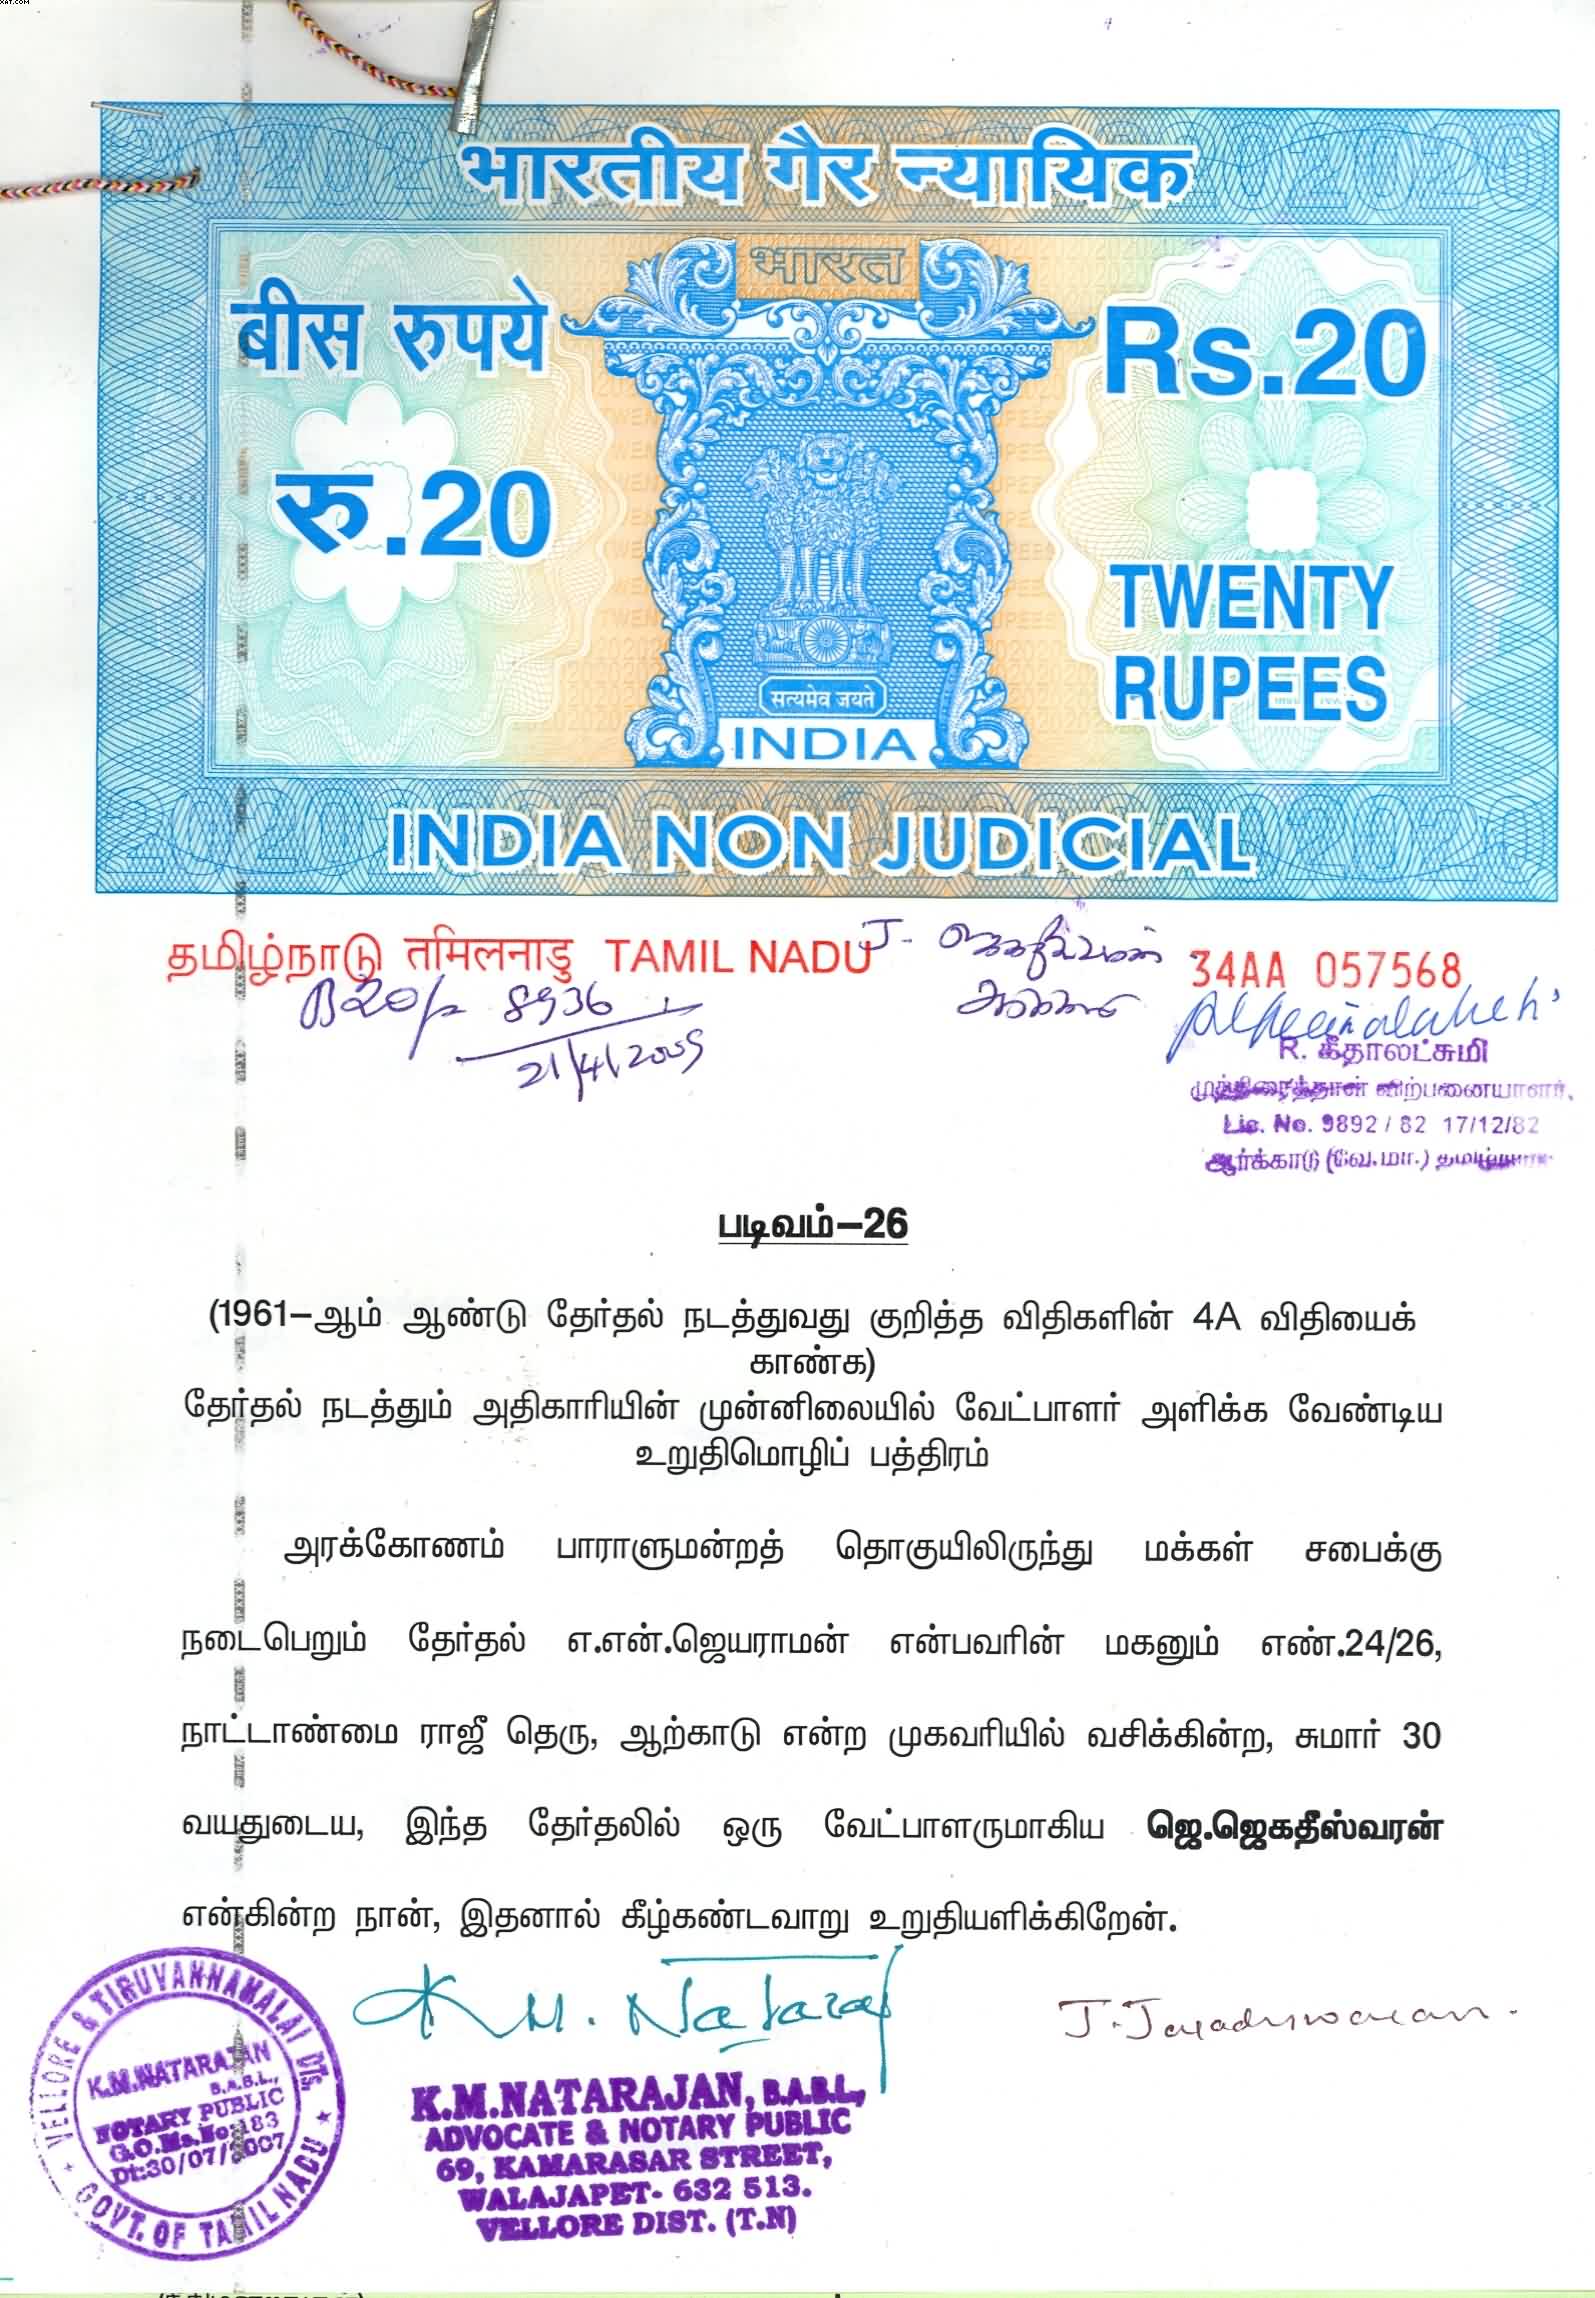 भारतीय गैर न्यायिक
भारत
बीस रुपये
Rs.20
रु.20
TWENTY
RUPEES
सत्यमेव जयते
INDIA
INDIA NON JUDICIAL
தமிழ்நாடு तमिलनाडु TAMIL NADU
34AA 057568
8936
21/4/2009
R. கீதாலட்சுமி
முத்திரைத்தாள் விற்பனையாளர்,
Lic. No. 9892 / 82 17/12/82
ஆர்க்காடு (வே.மா.)
படிவம்–26
(1961–ஆம் ஆண்டு தேர்தல் நடத்துவது குறித்த விதிகளின் 4A விதியைக்
காண்க)
தேர்தல் நடத்தும் அதிகாரியின் முன்னிலையில் வேட்பாளர் அளிக்க வேண்டிய
உறுதிமொழிப் பத்திரம்
அரக்கோணம் பாராளுமன்றத் தொகுயிலிருந்து மக்கள் சபைக்கு
நடைபெறும் தேர்தல் எ.என்.ஜெயராமன் என்பவரின் மகனும் எண்.24/26,
நாட்டாண்மை ராஜீ தெரு, ஆற்காடு என்ற முகவரியில் வசிக்கின்ற, சுமார் 30
வயதுடைய, இந்த தேர்தலில் ஒரு வேட்பாளருமாகிய ஜெ.ஜெகதீஸ்வரன்
என்கின்ற நான், இதனால் கீழ்கண்டவாறு உறுதியளிக்கிறேன்.
VELLORE & TIRUVANNAMALAI DTS.
K.M.NATARAJAN
B.A.B.L.,
NOTARY PUBLIC
G.O.Ms.No:183
Dt:30/07/2007
GOVT. OF TAMIL NADU
K.M. Nataraj
J. Jagadeswaran.
K.M.NATARAJAN, B.A.B.L.,
ADVOCATE & NOTARY PUBLIC
69, KAMARASAR STREET,
WALAJAPET- 632 513.
VELLORE DIST. (T.N)